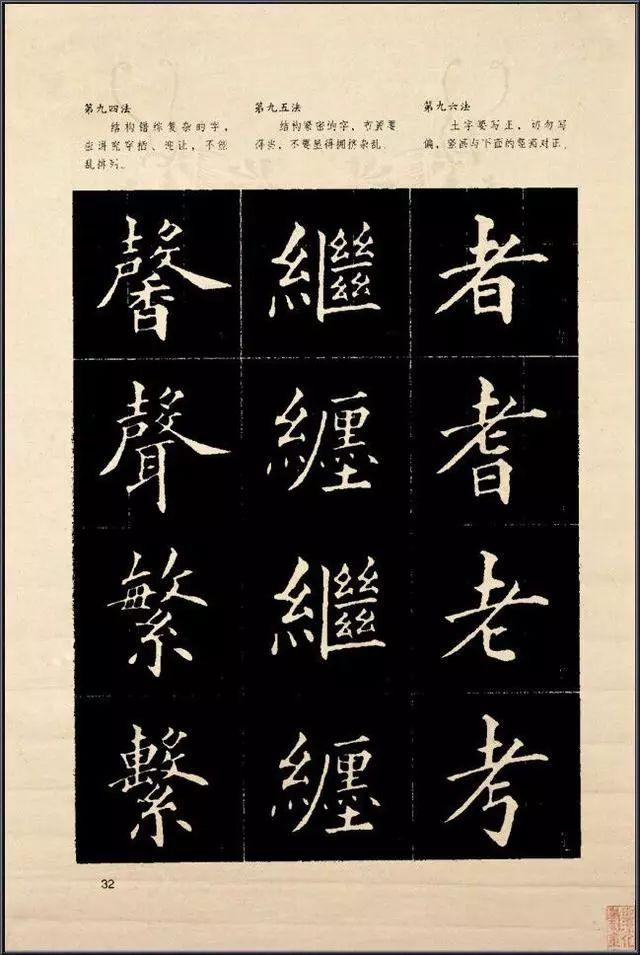 第九四法
结构错综复杂的字，
应讲究穿插、避让，不能
乱排列。
第九五法
结构紧密的字，布画要
得当，不要显得拥挤杂乱。
第九六法
土字要写正，切勿写
偏，竖画与下面的竖画对正。
者
耆
老
考
繼
纏
繼
纏
馨
聲
繁
繫
32